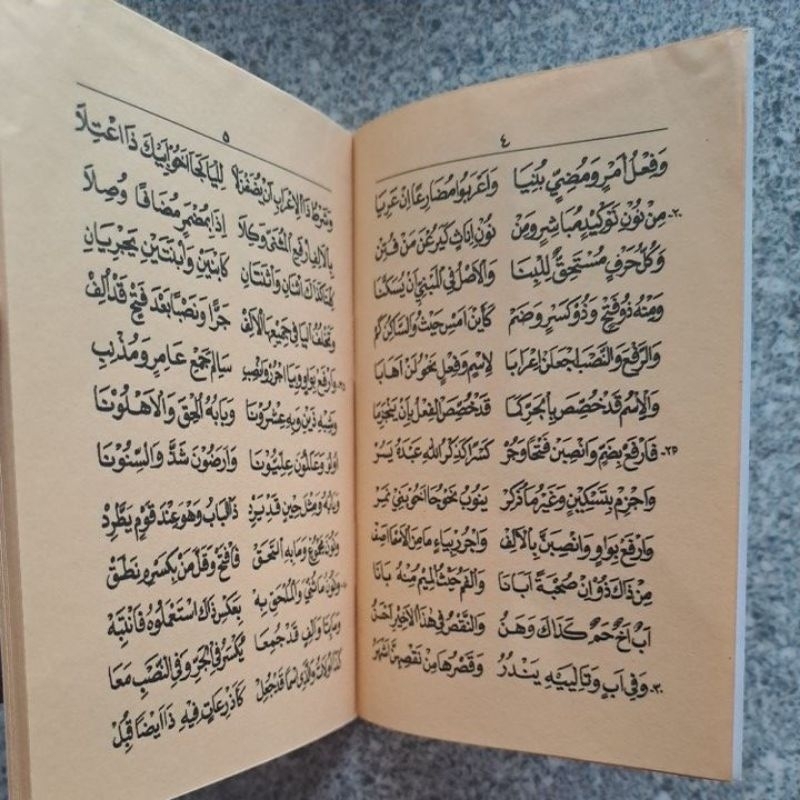 ٤
وَفِعْلُ أَمْرٍ وَمُضِيٍّ بُنِيَا وَأَعْرَبُوا مُضَارِعًا إِنْ عَرِيَا
٢٠- مِنْ نُونِ تَوْكِيدٍ مُبَاشِرٍ وَمِنْ نُونِ إِنَاثٍ كَيَرُعْنَ مَنْ فُتِنْ
وَكُلُّ حَرْفٍ مُسْتَحِقٌّ لِلْبِنَا وَالْأَصْلُ فِي الْمَبْنِيِّ أَنْ يُسَكَّنَا
وَمِنْهُ ذُو فَتْحٍ وَذُو كَسْرٍ وَضَمّ كَأَيْنَ أَمْسِ حَيْثُ وَالسَّاكِنُ كَمْ
وَالرَّفْعَ وَالنَّصْبَ اجْعَلَنْ إِعْرَابَا لِاسْمٍ وَفِعْلٍ نَحْوُ لَنْ أَهَابَا
وَالْاِسْمُ قَدْ خُصِّصَ بِالْجَرِّ كَمَا قَدْ خُصِّصَ الْفِعْلُ بِأَنْ يَنْجَزِمَا
٢٥- فَارْفَعْ بِضَمٍّ وَانْصِبَنْ فَتْحًا وَجُرْ كَسْرًا كَذِكْرُ اللهِ عَبْدَهُ يَسُرْ
وَاجْزِمْ بِتَسْكِينٍ وَغَيْرُ مَا ذُكِرْ يَنُوبُ نَحْوُ جَا أَخُو بَنِي نَمِرْ
وَارْفَعْ بِوَاوٍ وَانْصِبَنَّ بِالْأَلِفْ وَاجْرُرْ بِيَاءٍ مَا مِنَ الْأَسْمَا أَصِفْ
مِنْ ذَاكَ ذُو إِنْ صُحْبَةً أَبَانَا وَالْفَمُ حَيْثُ الْمِيمُ مِنْهُ بَانَا
أَبٌ أَخٌ حَمٌ كَذَاكَ وَهَنُ وَالنَّقْصُ فِي هٰذَا الْأَخِيرِ أَحْسَنُ
٣٠- وَفِي أَبٍ وَتَالِيَيْهِ يَنْدُرُ وَقَصْرُهَا مِنْ نَقْصِهِنَّ أَشْهَرُ
٥
وَشَرْطُ ذَا الْإِعْرَابِ أَنْ يُضَفْنَ لَا لِلْيَا كَجَا أَخُو أَبِيكَ ذَا اعْتِلَا
بِالْأَلِفِ ارْفَعِ الْمُثَنَّى وَكِلَا إِذَا بِمُضْمَرٍ مُضَافًا وُصِلَا
كِلْتَا كَذَاكَ اثْنَانِ وَاثْنَتَانِ كَابْنَيْنِ وَابْنَتَيْنِ يَجْرِيَانِ
وَتَخْلُفُ الْيَا فِي جَمِيعِهَا الْأَلِفْ جَرًّا وَنَصْبًا بَعْدَ فَتْحٍ قَدْ أُلِفْ
٣٥- وَارْفَعْ بِوَاوٍ وَبِيَا اجْرُرْ وَانْصِبِ سَالِمَ جَمْعِ عَامِرٍ وَمُذْنِبِ
وَشِبْهِ ذَيْنِ وَبِهِ عِشْرُونَا وَبَابُهُ أُلْحِقَ وَالْأَهْلُونَا
أُولُو وَعَالَمُونَ عِلِّيُّونَا وَأَرَضُونَ شَذَّ وَالسِّنُونَا
وَبَابُهُ وَمِثْلَ حِينٍ قَدْ يَرِدْ ذَا الْبَابُ وَهْوَ عِنْدَ قَوْمٍ يَطَّرِدْ
وَنُونَ مَجْمُوعٍ وَمَا بِهِ الْتَحَقْ فَافْتَحْ وَقَلَّ مَنْ بِكَسْرِهِ نَطَقْ
٤٠- وَنُونُ مَا ثُنِّيَ وَالْمُلْحَقِ بِهِ بِعَكْسِ ذَاكَ اسْتَعْمَلُوهُ فَانْتَبِهْ
وَمَا بِتَا وَأَلِفٍ قَدْ جُمِعَا يُكْسَرُ فِي الْجَرِّ وَفِي النَّصْبِ مَعَا
كَذَا أُولَاتُ وَالَّذِي اسْمًا قَدْ جُعِلْ كَأَذْرِعَاتٍ فِيهِ ذَا أَيْضًا قُبِلْ